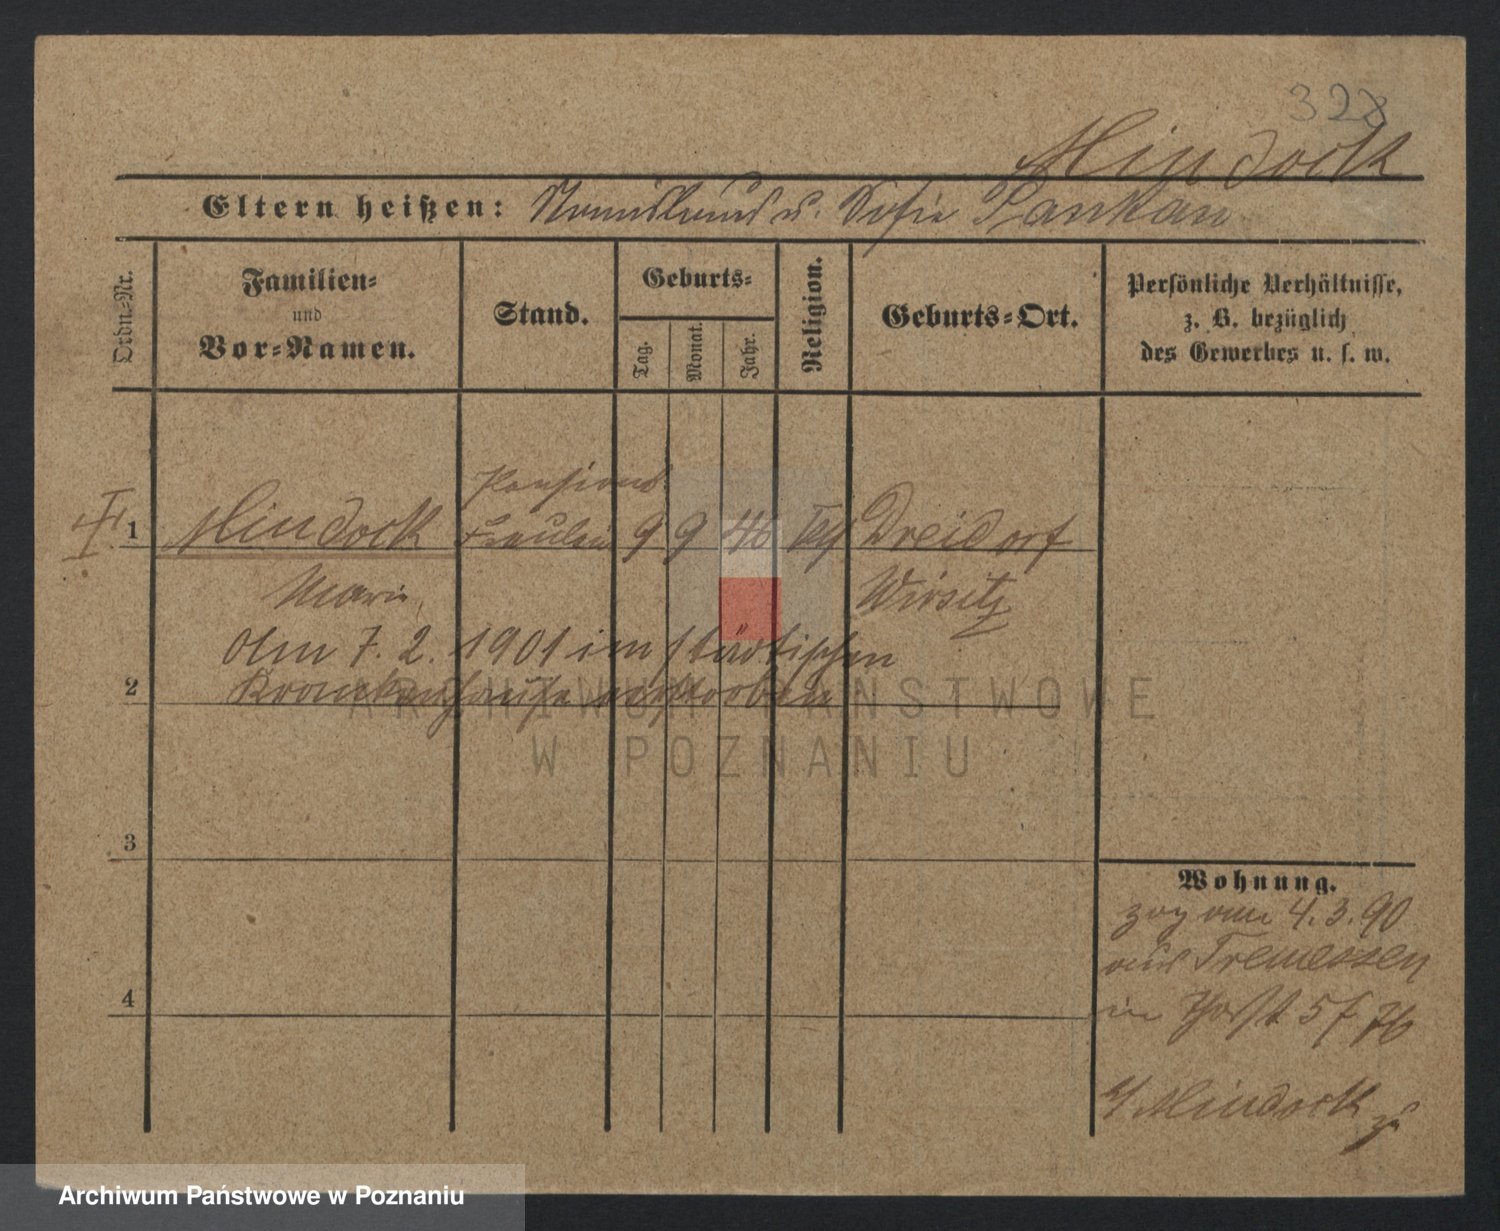 328
Mindock
Eltern heißen: Stanislaus u. Sofie Pankau
Ordn.-Nr.
Familien-
und
Vor-Namen.
Stand.
Geburts-
Tag.
Monat.
Jahr.
Religion.
Geburts-Ort.
Persönliche Verhältnisse,
z. B. bezüglich
des Gewerbes u. s. w.
I
1 Mindock Pensions
Fräulein 9 9 46 Dreidorf
Marie Wirsitz
Am 7. 2. 1901 im städtischen
2 Krankenhause verstorben
3
Wohnung.
zog am 4. 3. 90
aus Tremessen
in
4
Mindock
ARCHIWUM PAŃSTWOWE
W POZNANIU
Archiwum Państwowe w Poznaniu